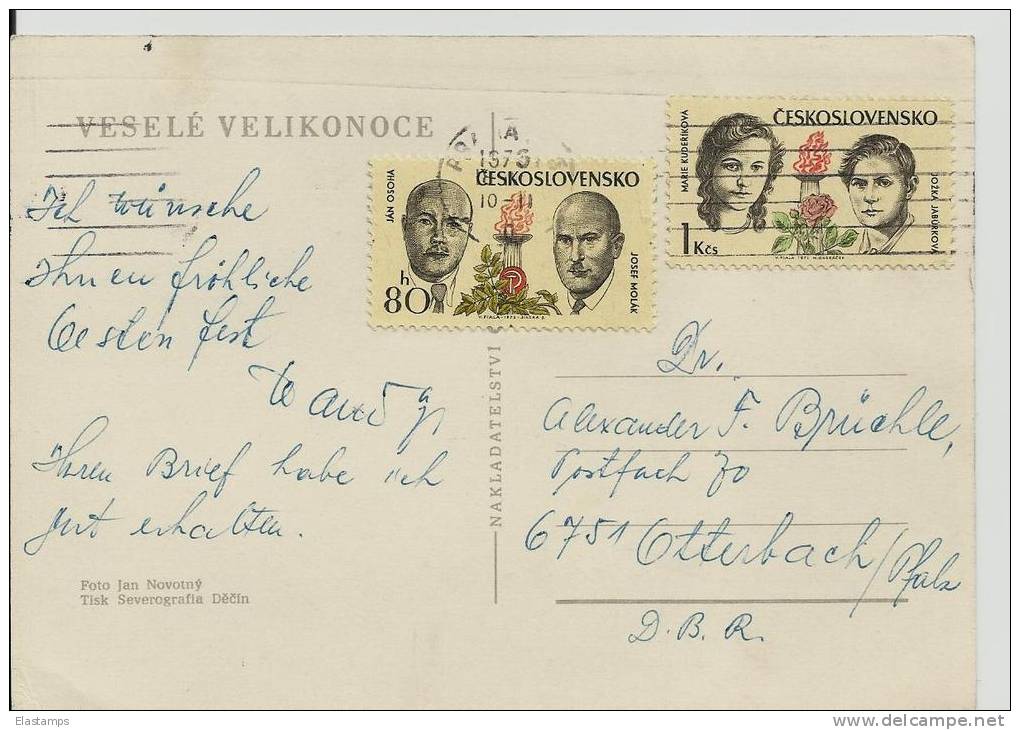 VESELÉ VELIKONOCE
Ich wünsche
Ihnen fröhliche
Oesten fest
Ihren Brief habe ich
gut erhalten.
Foto Jan Novotný
Tisk Severografia Děčín
NAKLADATELSTVÍ
10-II
ČESKOSLOVENSKO
JÁN OSOHA
JOSEF MOLÁK
h
80
ČESKOSLOVENSKO
MARIE KUDEŘÍKOVÁ
JOŽKA JABŮRKOVÁ
1 Kčs
Dr.
Alexander F. Brüchle,
Postfach 70
6751 Otterbach/Pfalz
D.B.R.
Elastamps
www.delcampe.net